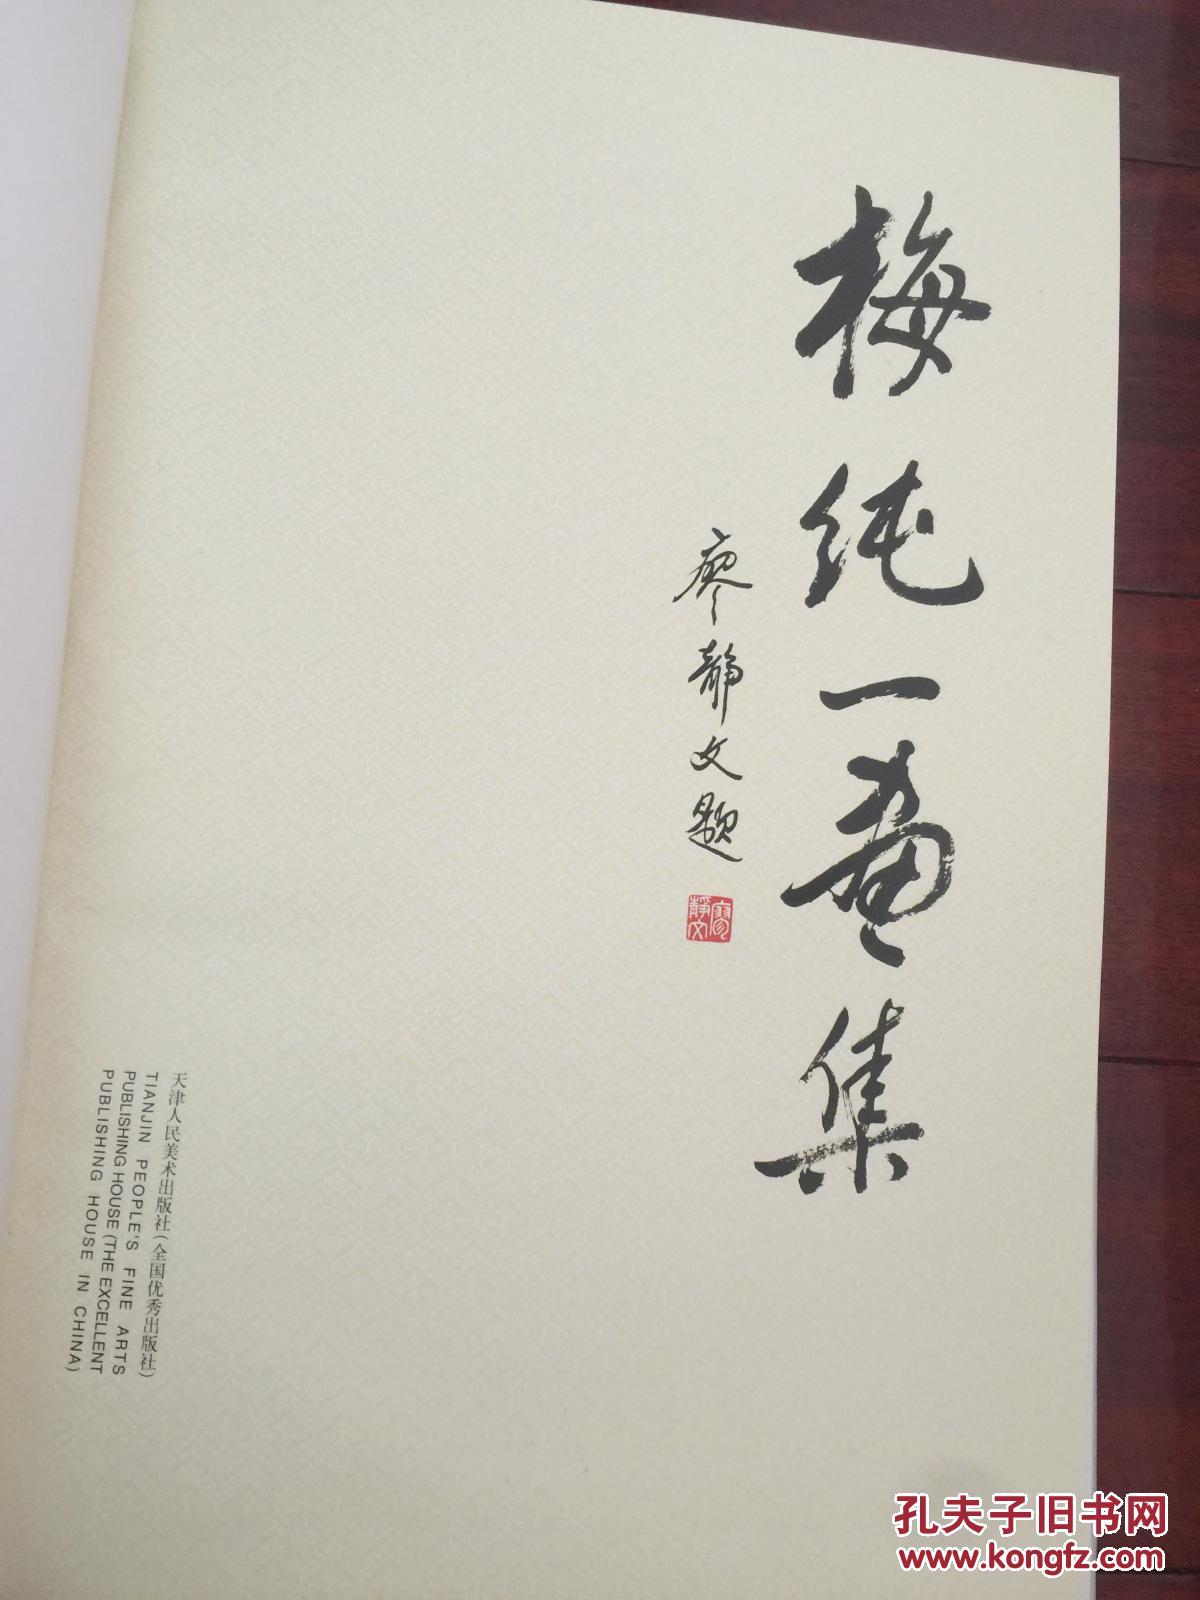 梅纯一画集
廖静文题
廖静文
天津人民美术出版社(全国优秀出版社)
TIANJIN PEOPLE'S FINE ARTS
PUBLISHING HOUSE (THE EXCELLENT
PUBLISHING HOUSE IN CHINA)
孔夫子旧书网
www.kongfz.com